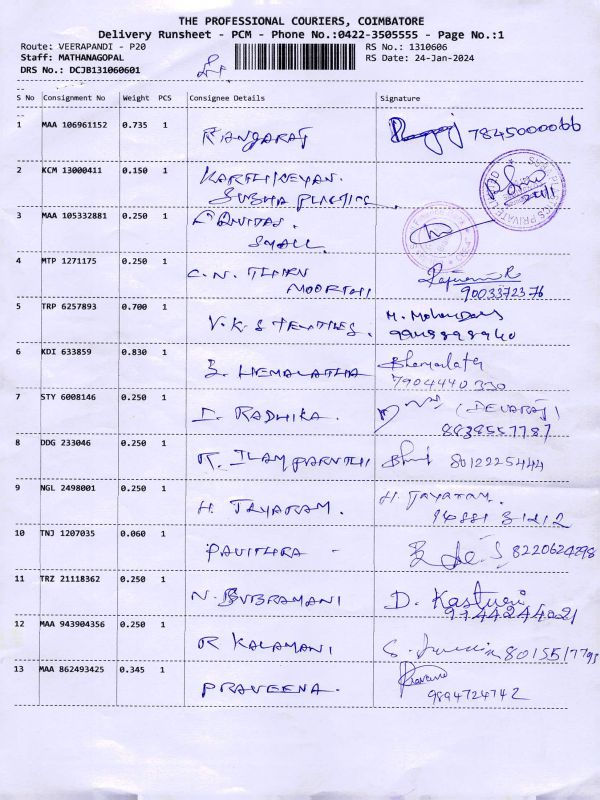 THE PROFESSIONAL COURIERS, COIMBATORE
Delivery Runsheet - PCM - Phone No.:0422-3505555 - Page No.:1
Route: VEERAPANDI - P20 RS No.: 1310606
Staff: MATHANAGOPAL RS Date: 24-Jan-2024
DRS No.: DCJB131060601
S No Consignment No Weight PCS Consignee Details Signature
1 MAA 106961152 0.735 1 RANGARAJ 7845000066
2 KCM 13000411 0.150 1 KARTHIKEYAN.
SUBHA PLASTICS.
3 MAA 105332881 0.250 1
SMALL.
4 MTP 1271175 0.250 1 C.N. THARN
MOORTHI 9003372376
5 TRP 6257893 0.700 1 V.K.S TEXTILES. M. Mohandas
6 KDI 633859 0.830 1 B. HEMALATHA
7904440330
7 STY 6008146 0.250 1 I. RADHIKA. (DEVARAJ)
8838557787
8 DDG 233046 0.250 1 R. ILAMPARNTHI 8012225444
9 NGL 2498001 0.250 1 H. JAYARAM. H. Jayaram.
10 TNJ 1207035 0.060 1 PAVITHRA - 8220624298
11 TRZ 21118362 0.250 1 N. SUBRAMANI D. Kasturi
12 MAA 943904356 0.250 1 R KALAMANI
13 MAA 862493425 0.345 1 PRAVEENA.
9894724742